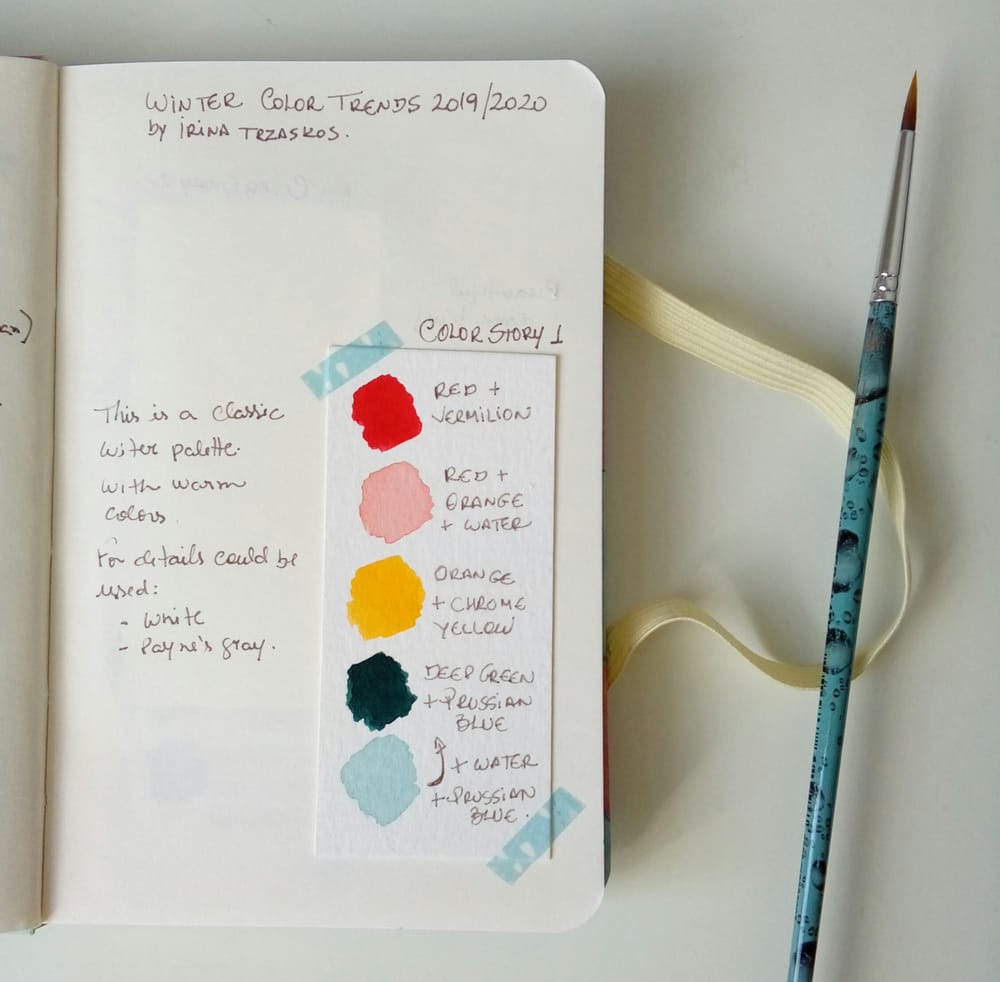 WINTER COLOR TRENDS 2019/2020
by IRINA TRZASKOS.
COLOR STORY 1
This is a classic
witer palette.
with warm
colors.
For details could be
used:
- White
- Payne's gray.
RED +
VERMILION
RED +
ORANGE
+ WATER
ORANGE
+ CHROME
YELLOW
DEEP GREEN
+ PRUSSIAN
BLUE
+ WATER
+ PRUSSIAN
BLUE.